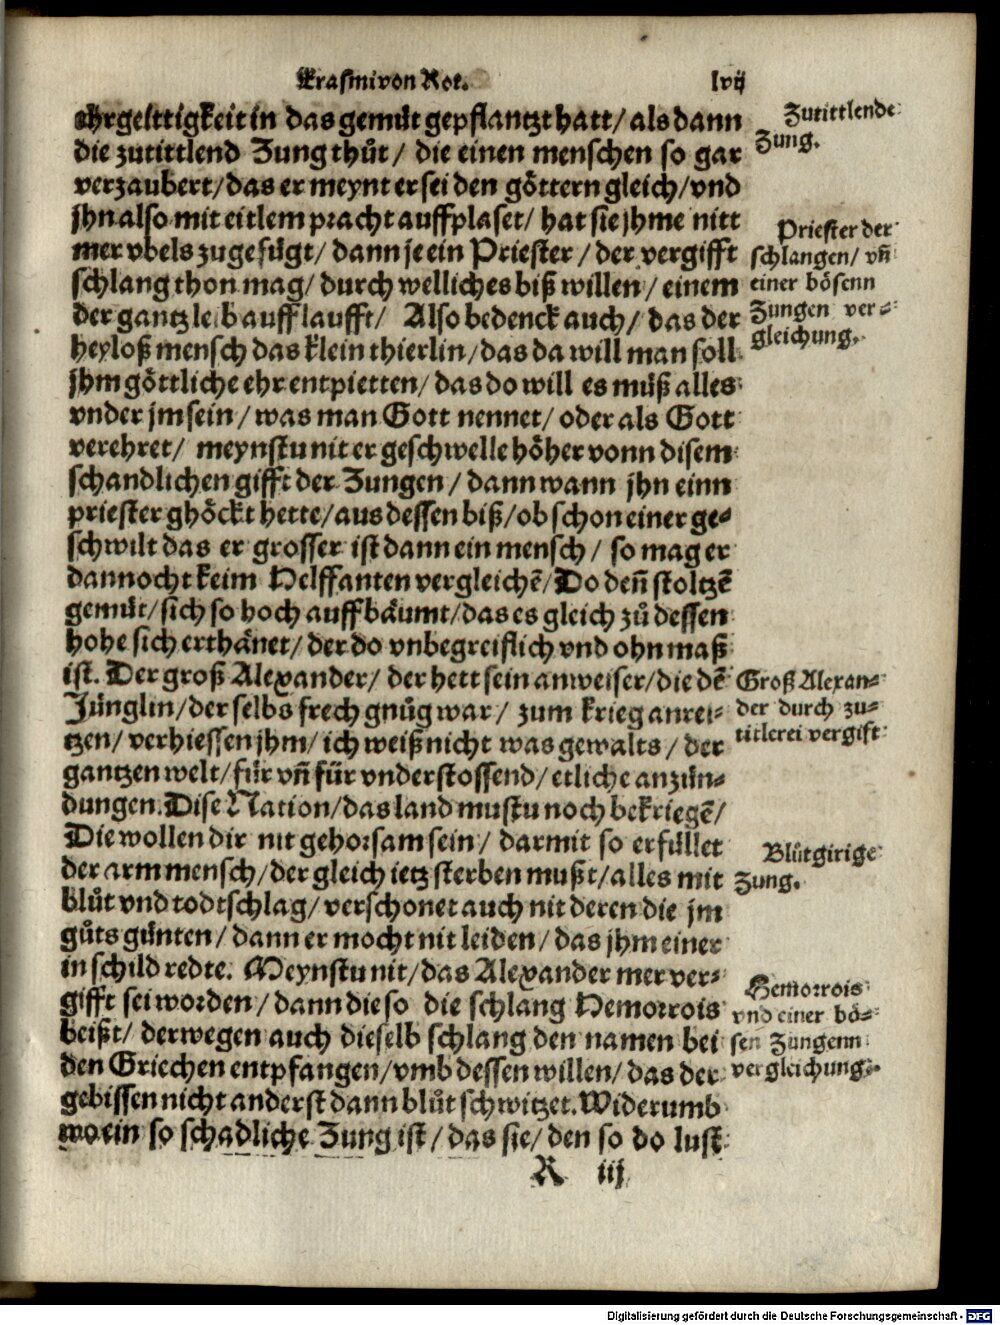 Erasmi von Rot. lvij
ehrgeittigkeit in das gemüt gepflantzt hatt/ als dann
die zutittlend Zung thůt/ die einen menschen so gar
verzaubert/ das er meynt er sei den göttern gleich/ vnd
jhn also mit eitlem pracht auffplaset/ hat sie jhme nitt
mer vbels zugefügt/ dann je ein Priester/ der vergifft
schlang thon mag/ durch welliches biß willen/ einem
der gantz leib aufflaufft/ Also bedenck auch/ das der
heyloß mensch das klein thierlin/ das da will man soll
jhm göttliche ehr entpietten/ das do will es můß alles
vnder jm sein/ was man Gott nennet/ oder als Gott
verehret/ meynstu nit er geschwelle höher vonn disem
schandlichen gifft der Zungen/ dann wann jhn einn
priester ghöckt hette/ aus dessen biß/ ob schon einer ge⸗
schwilt das er grosser ist dann ein mensch/ so mag er
dannocht keim Helffanten vergleichẽ/ Do deñ stoltzẽ
gemüt/ sich so hoch auffbäumt/ das es gleich zů dessen
hohe sich erthänet/ der do vnbegreiflich vnd ohn maß
ist. Der groß Alexander/ der hett sein anweiser/ die dẽ
Jünglin/ der selbs frech gnůg war/ zum krieg anrei⸗
tzen/ verhiessen jhm/ ich weiß nicht was gewalts/ der
gantzen welt/ für vñ für vnderstossend/ etliche anzün⸗
dungen. Dise Nation/ das land mustu noch bekriegẽ/
Die wollen dir nit gehorsam sein/ darmit so erfüllet
der arm mensch/ der gleich ietz sterben mußt/ alles mit
blůt vnd todtschlag/ verschonet auch nit deren die jm
gůts günten/ dann er mocht nit leiden/ das jhm einer
in schild redte. Meynstu nit/ das Alexander mer ver⸗
gifft sei worden/ dann die so die schlang Hemorrois
beißt/ derwegen auch dieselb schlang den namen bei
den Griechen entpfangen/ vmb dessen willen/ das der
gebissen nicht anderst dann blůt schwitzet. Widerumb
wo ein so schadliche Zung ist/ das sie/ den so do lust
K iij
Zutittlende
Zung.
Priester der
schlangen/ vñ
einer bösenn
Zungen ver⸗
gleichung.
Groß Alexan⸗
der durch zu⸗
titlerei vergift
Blůtgirige
Zung.
Hemorrois
vnd einer bö⸗
sen Zungenn
vergleichung.
Digitalisierung gefördert durch die Deutsche Forschungsgemeinschaft - DFG